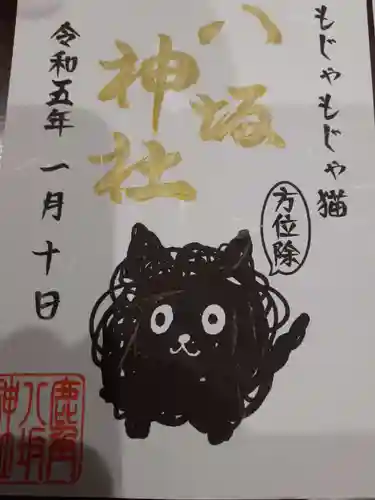 もじゃもじゃ猫
八坂
神社
方位除
令和五年 一月十日
鹿角
八坂
神